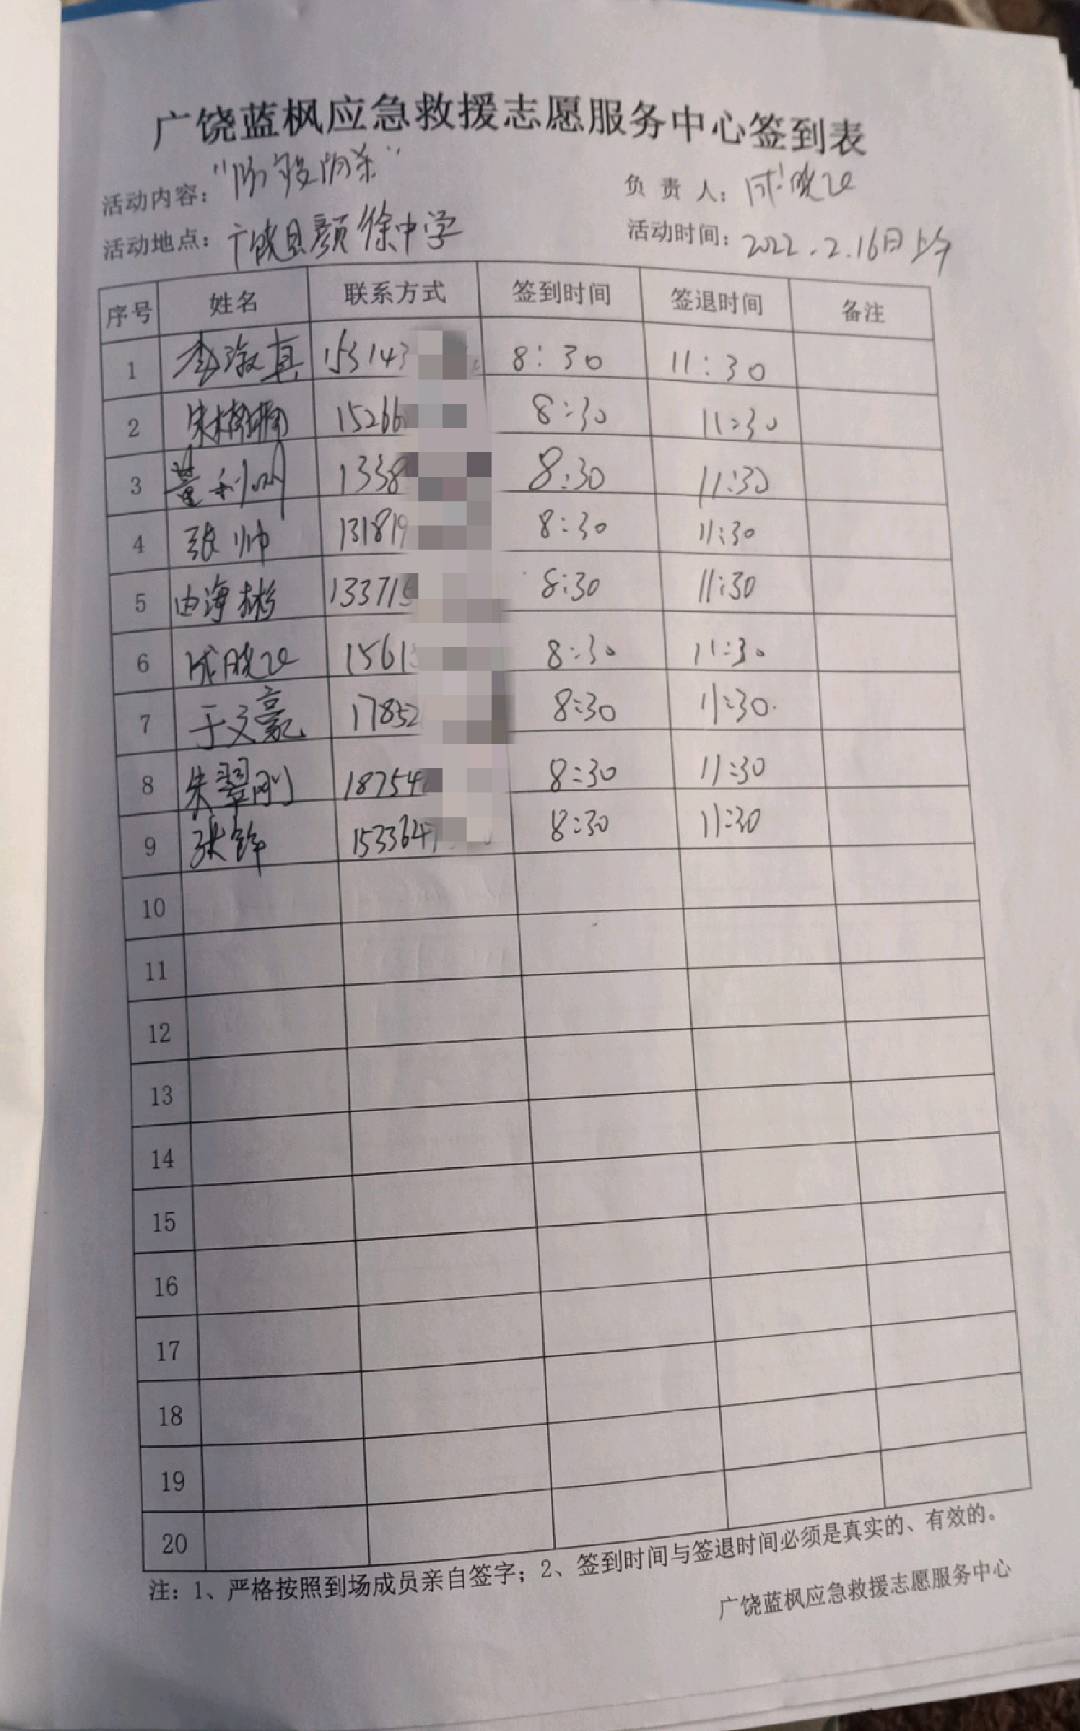 广饶蓝枫应急救援志愿服务中心签到表
活动内容："防疫消杀" 负责人：成晓
活动地点：广饶县颜徐中学 活动时间：2022.2.16日上午
序号 姓名 联系方式 签到时间 签退时间 备注
1 李淑真 15314 8:30 11:30
2 朱 15266 8:30 11:30
3 董利 1338 8:30 11:30
4 张帅 131819 8:30 11:30
5 由海彬 13371 8:30 11:30
6 成晓 1561 8:30 11:30
7 于文豪 17852 8:30 11:30
8 朱翠刚 18754 8:30 11:30
9 张锋 1533647 8:30 11:30
10
11
12
13
14
15
16
17
18
19
20
注：1、严格按照到场成员亲自签字；2、签到时间与签退时间必须是真实的、有效的。
广饶蓝枫应急救援志愿服务中心